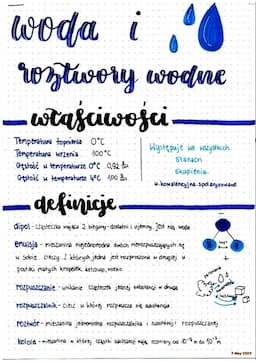 woda i
roztwory wodne
właściwości
Temperatura topnienia 0°C
Temperatura wrzenia 100°C
Gęstość w temperaturze 0°C 0,92
Gęstość w temperaturze 4°C 1,00
Występuje we wszystkich
stanach
skupienia.
w. kowalencyjne spolaryzowane
definicje
dipol - cząsteczka mająca 2 bieguny - dodatni i ujemny. Jest nią woda
emulsja - mieszanina niejednorodna dwóch nierozpuszczających się
w sobie cieczy. Z których jedna jest rozproszona w drugiej w
postaci małych kropelek,
rozpuszczanie - znikanie cząsteczek jednej substancji w drugiej
rozpuszczalnik - ciecz w której rozpuszcza się substancja
roztwór - mieszanina jednorodna rozpuszczalnika i substancji rozpuszczanej
koloid - mieszanina w której cząstki substancji mają rozmiary od 10⁻⁹ do 10⁻⁷